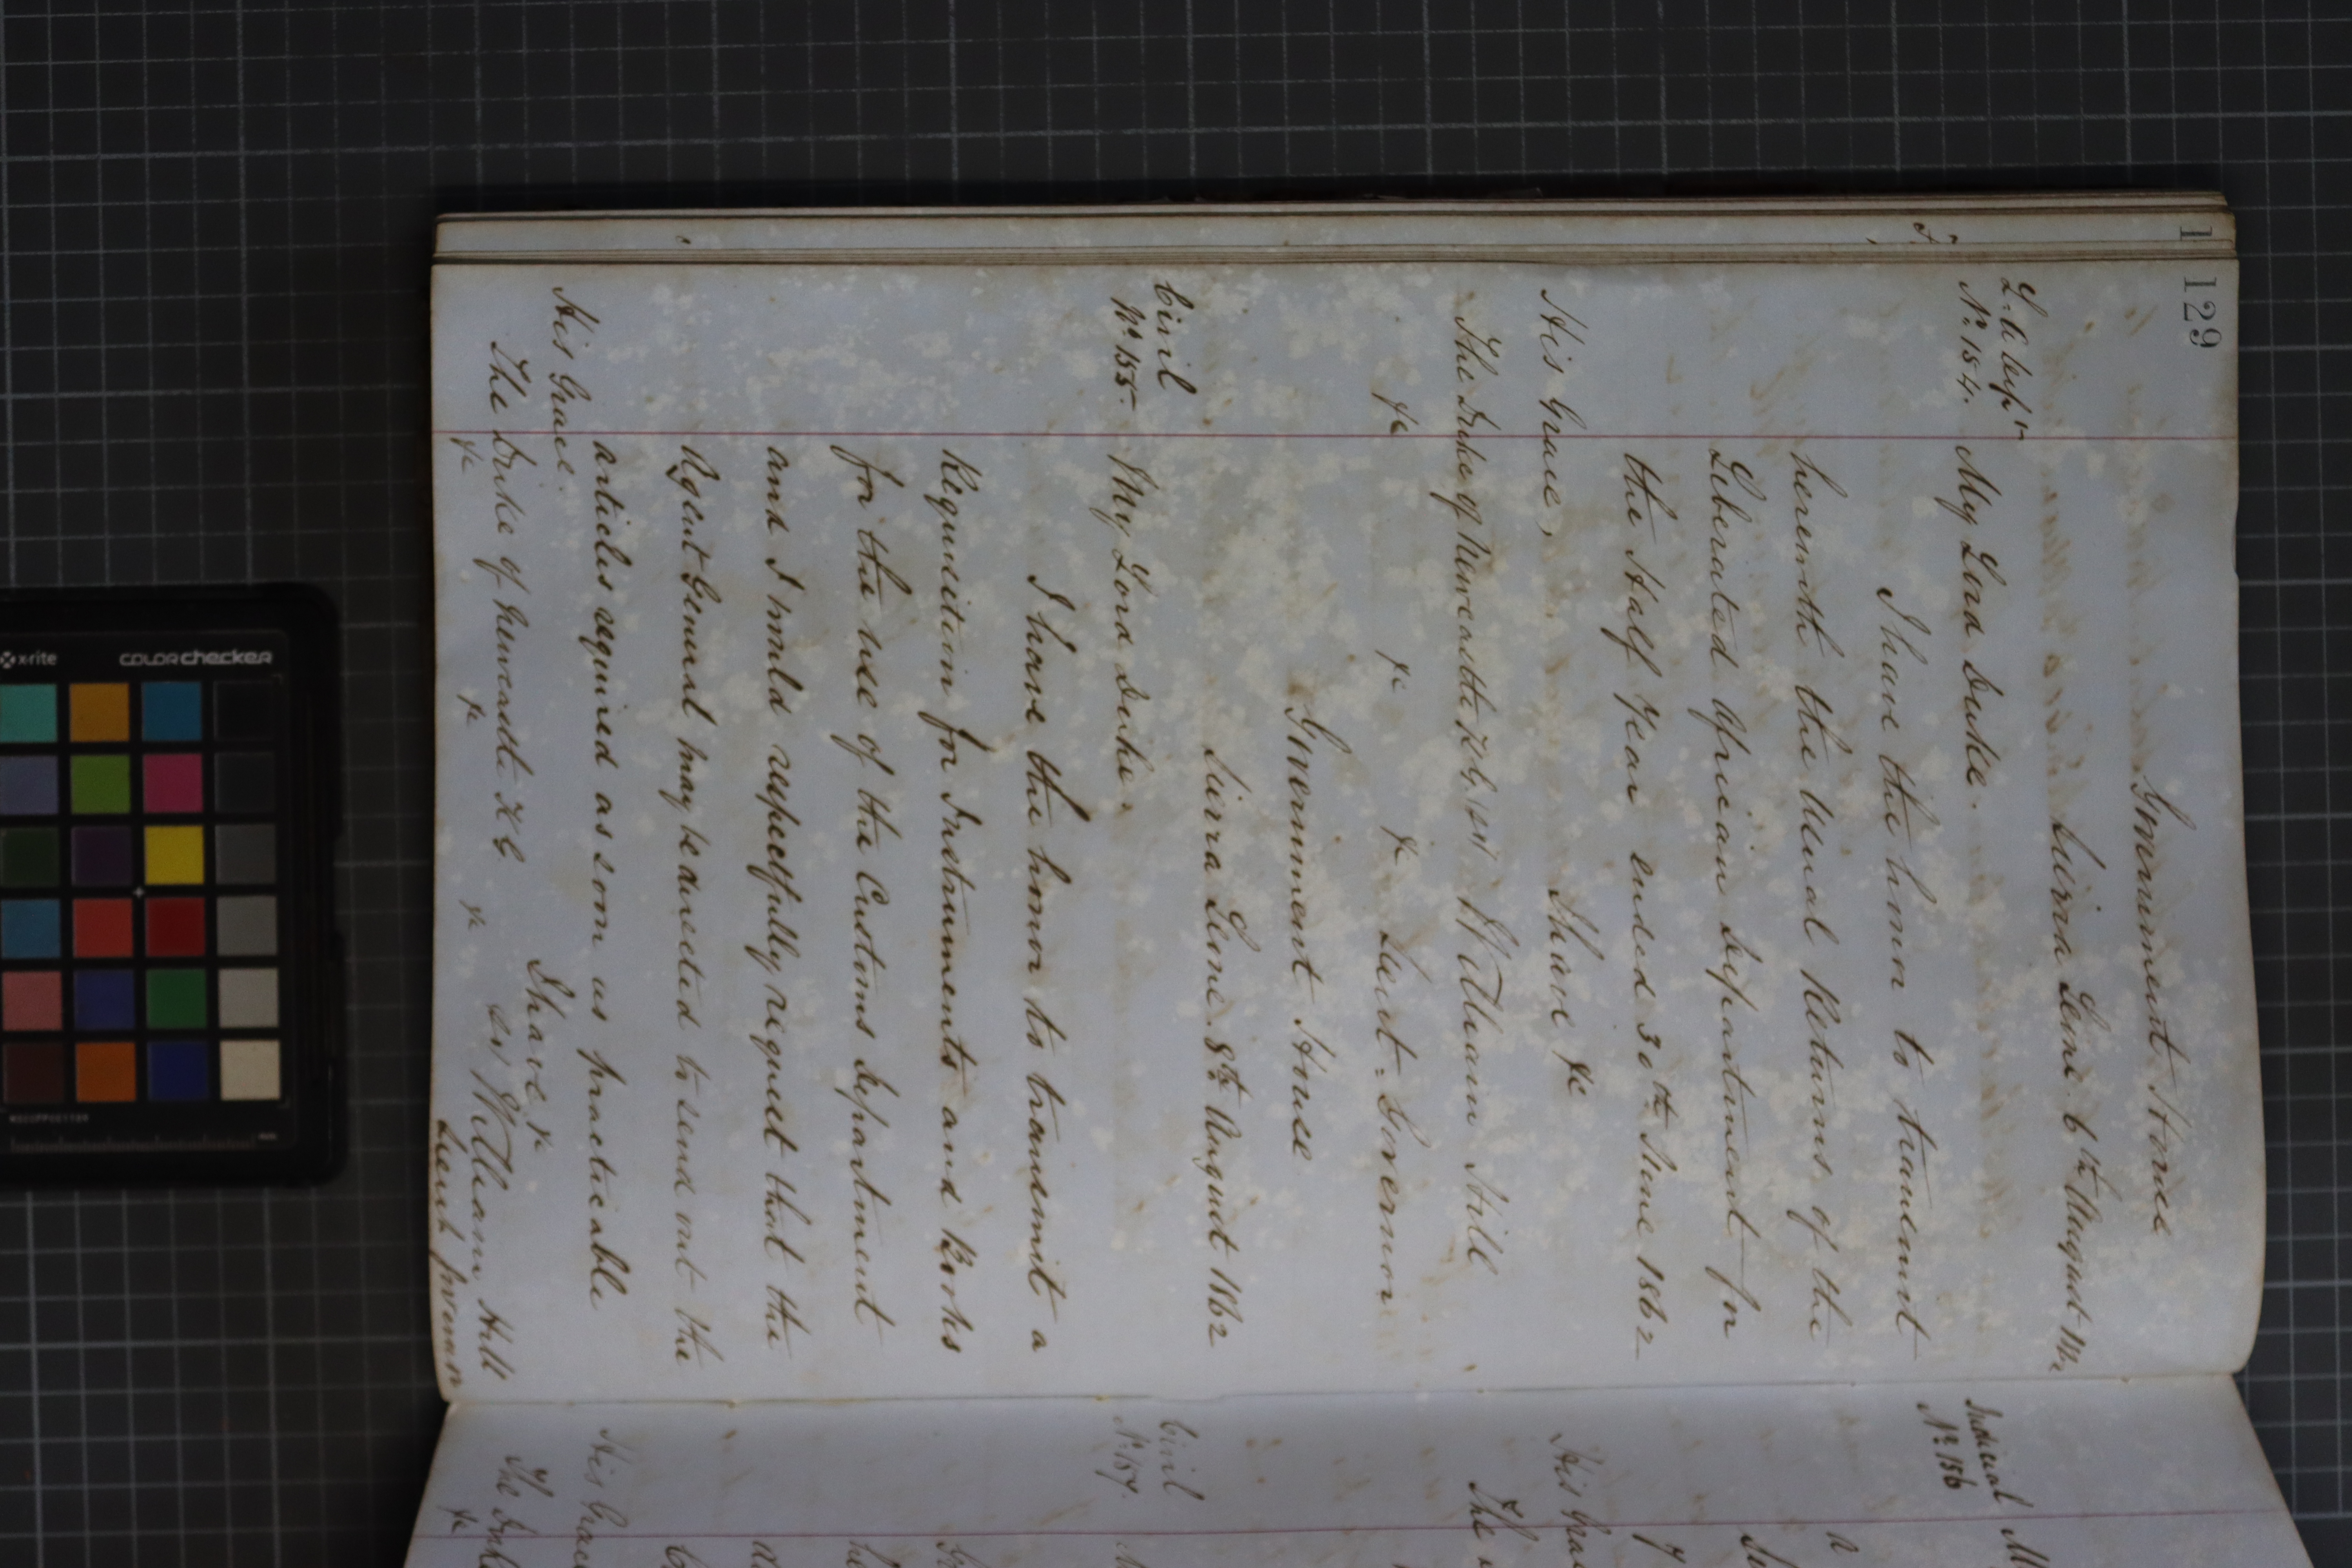 129
Government House
Sierra Leone 6th August 1862
L. A. Dept
No. 154. My Lord Duke.
I have the honor to transmit
herewith the usual Returns of the
Liberated African Department for
the Half Year ended 30th June 1862
I have &c
His Grace,
The Duke of Newcastle K.G. William Hill
&c &c &c Lieut. Governor
Government House
Sierra Leone. 8th August 1862
Civil
No. 155. My Lord Duke.
I have the honor to transmit a
Requisition for Instruments and Books
for the use of the Customs Department
and I would respectfully request that the
Agent General may be directed to send out the
articles required as soon as practicable
I have &c
His Grace.
The Duke of Newcastle K G William Hill
&c &c &c Lieut Governor
Judicial
No. 156
His Grace
The
Civil
No. 157.
His Grace
The Duke
&c
x-rite
colorchecker